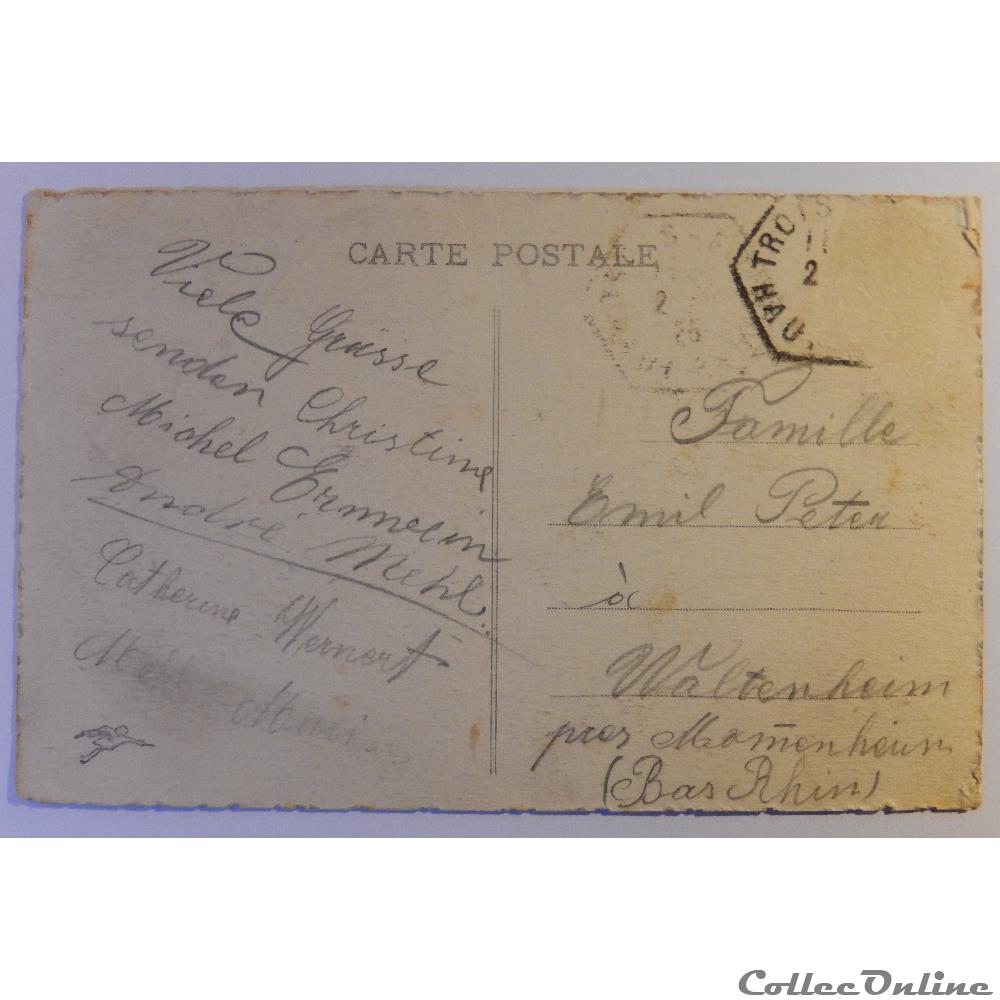 CARTE POSTALE
Viele Grüsse
sendan Christine
Michel Ermwein
André Mehl.
Catherine Wernert
Mari
TROIS
HAU.
11
2
2
26
Famille
Emil Peter
à
Waltenheim
pres Mom̄enheim
(Bas Rhin)
CollecOnline